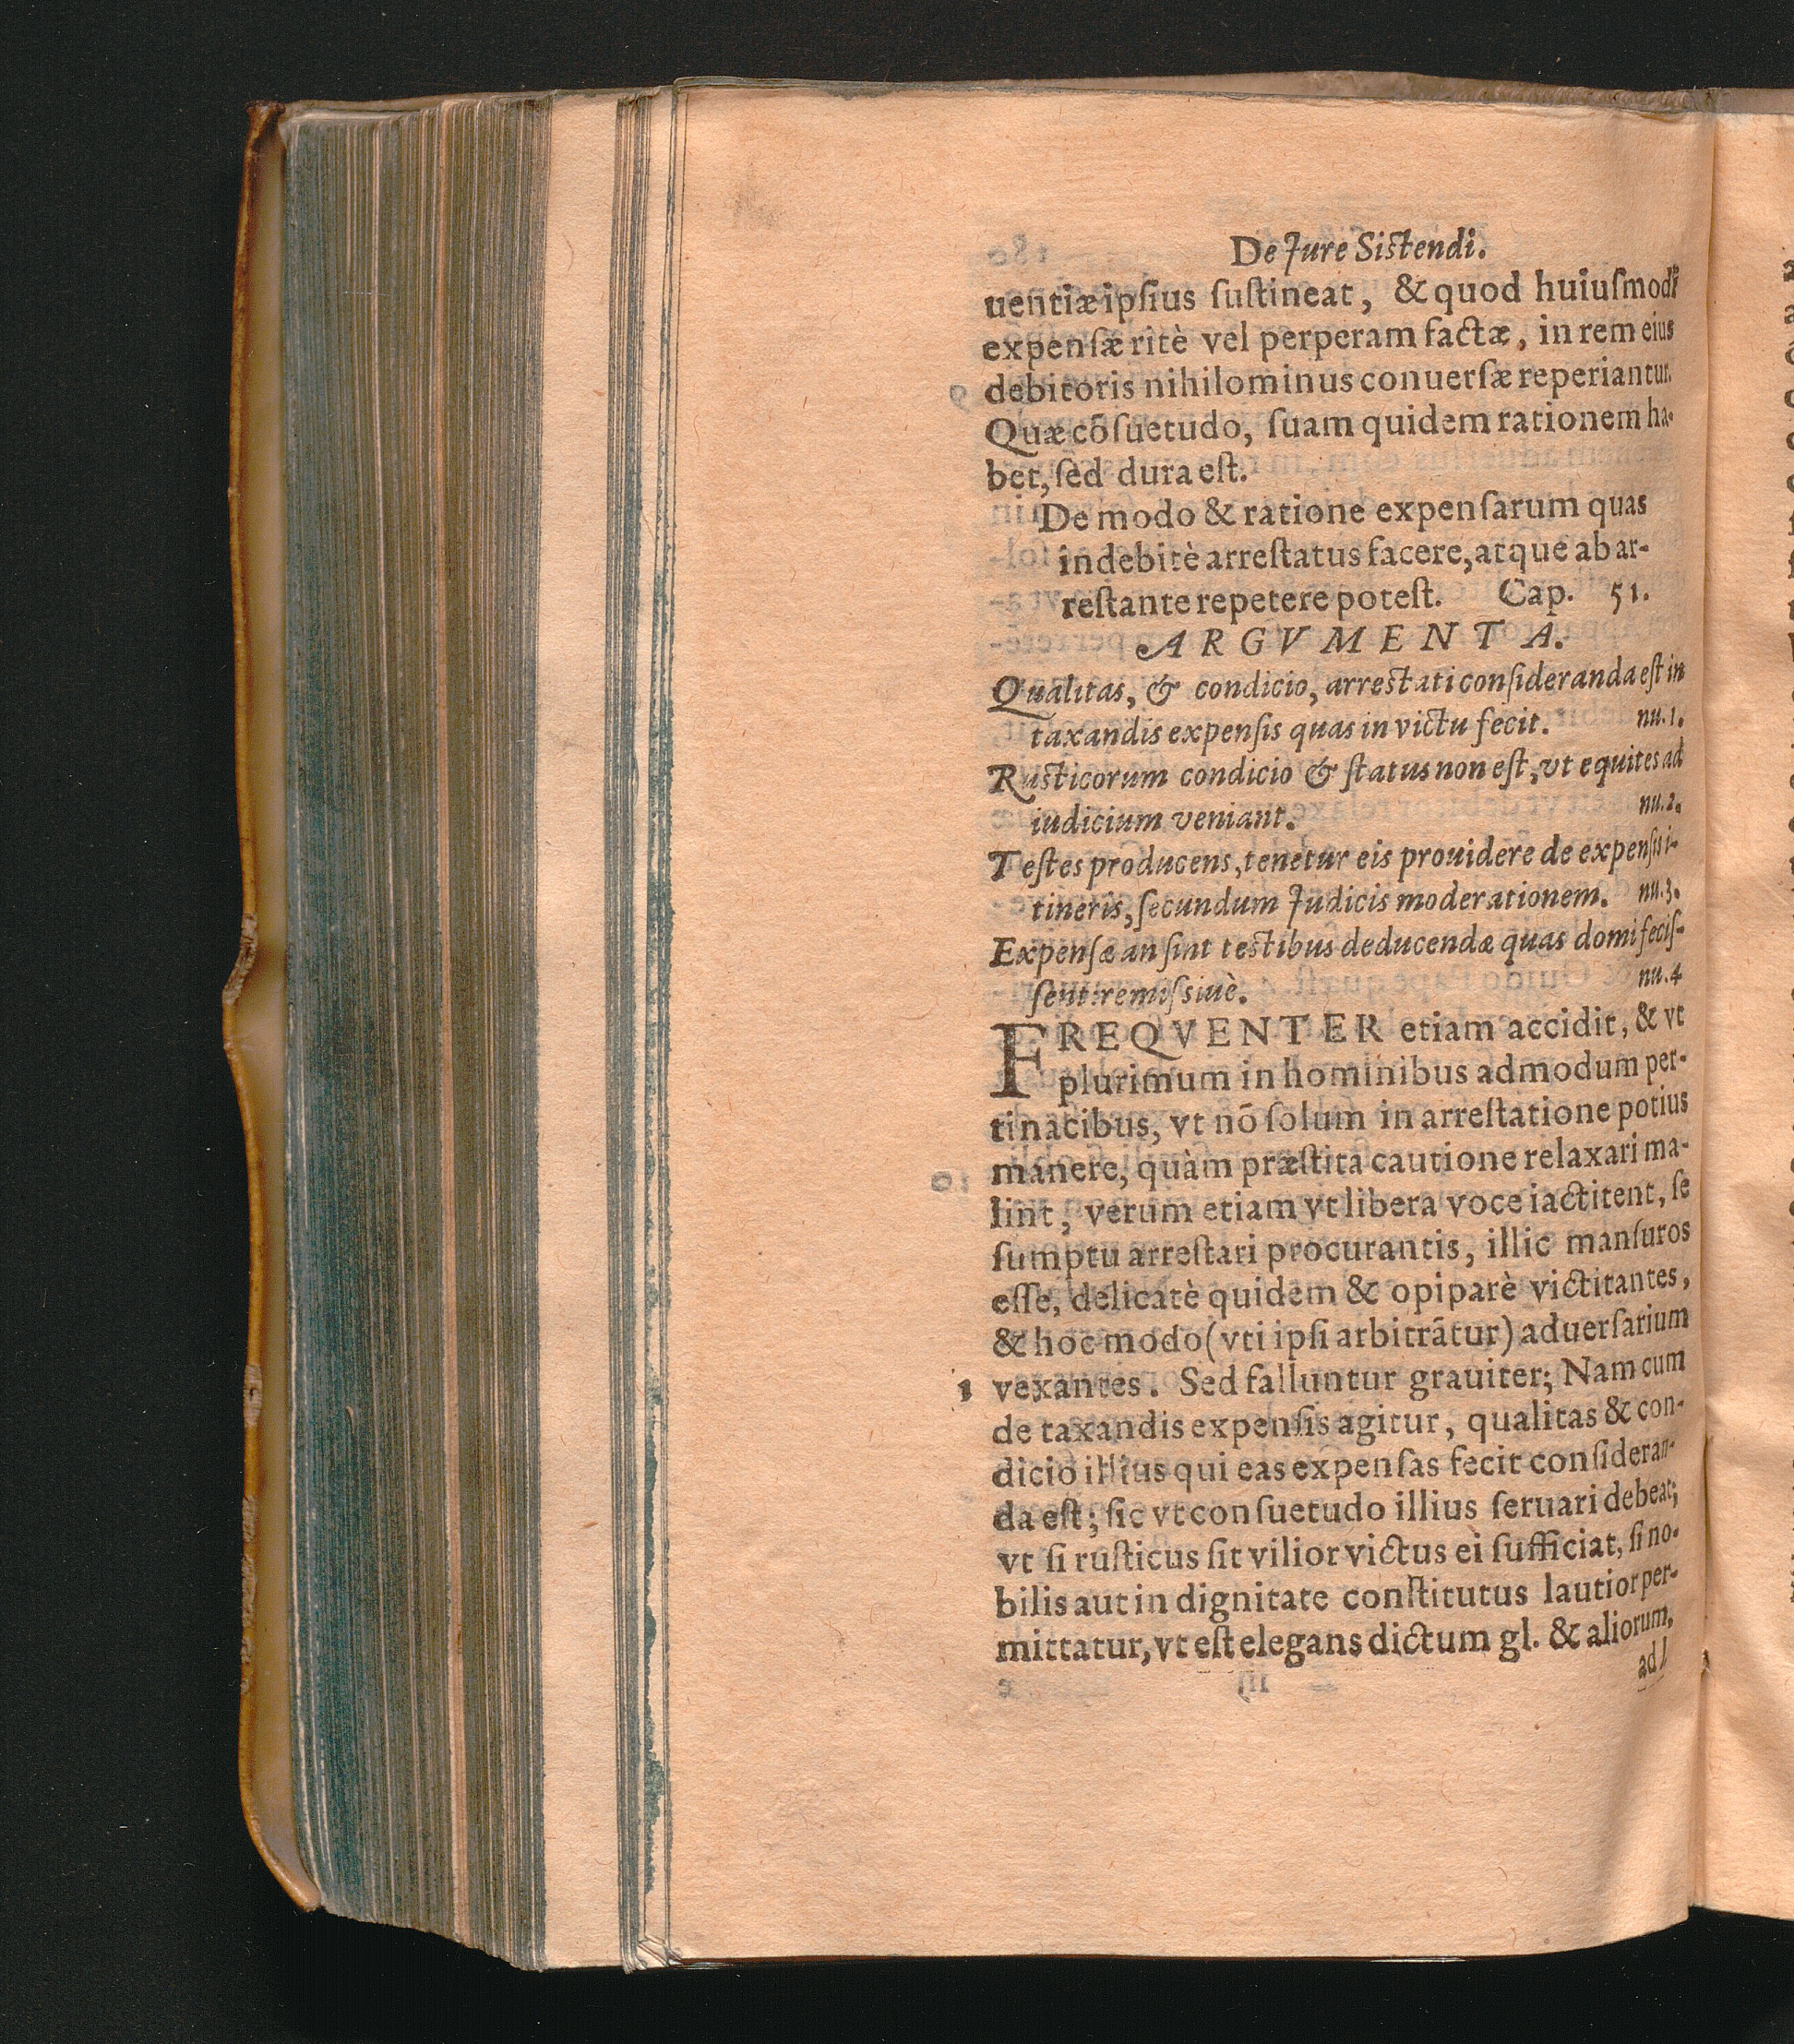 De Jure Sistendi.
uentiæ ipſius ſuſtineat, & quod huiuſmodi
expenſæ ritè vel perperam factæ, in rem eius
debitoris nihilominus conuerſæ reperiantur.
Quæ cōſuetudo, ſuam quidem rationem ha-
bet, ſed dura eſt.
De modo & ratione expenſarum quas
indebitè arreſtatus facere, atque ab ar-
reſtante repetere poteſt. Cap. 51.
ARGVMENTA.
Qualitas, & condicio, arreſtati conſideranda eſt in
taxandis expenſis quas in victu fecit. nu.1.
Ruſticorum condicio & ſtatus non eſt, vt equites ad
iudicium veniant. nu.2.
Teſtes producens, tenetur eis prouidere de expenſis i-
tineris, ſecundum Judicis moderationem. nu.3.
Expenſæ an ſint teſtibus deducendæ quas domi feciſ-
ſent: remiſsiuè. nu.4
FREQVENTER etiam accidit, & vt
plurimum in hominibus admodum per-
tinacibus, vt nō ſolum in arreſtatione potius
manere, quàm præſtita cautione relaxari ma-
lint, verum etiam vt libera voce iactitent, ſe
ſumptu arreſtari procurantis, illic manſuros
eſſe, delicatè quidem & opiparè victitantes,
& hoc modo (vti ipſi arbitrātur) aduerſarium
1 vexantes. Sed falluntur grauiter; Nam cum
de taxandis expenſis agitur, qualitas & con-
dicio illius qui eas expenſas fecit conſideran-
da eſt; ſic vt conſuetudo illius ſeruari debeat;
vt ſi ruſticus ſit vilior victus ei ſufficiat, ſi no-
bilis aut in dignitate conſtitutus lautior per-
mittatur, vt eſt elegans dictum gl. & aliorum,
ad l